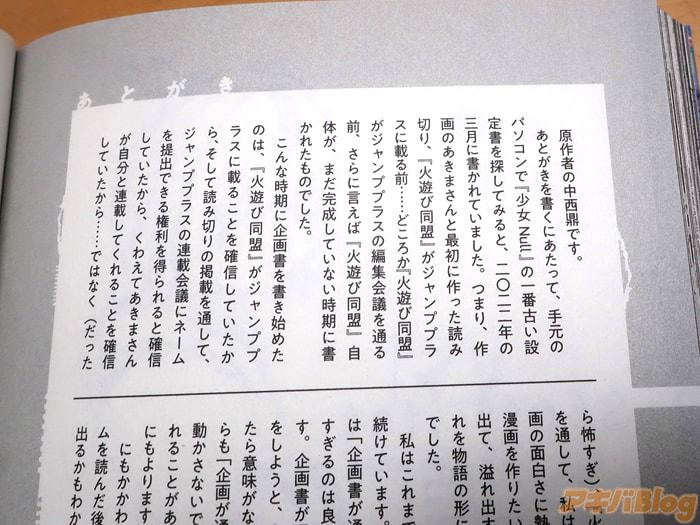 あとがき
原作者の中西鼎です。
あとがきを書くにあたって、手元の
パソコンで『少女Null』の一番古い設
定書を探してみると、二〇二二年の
三月に書かれていました。つまり、作
画のあきまさんと最初に作った読み
切り、『火遊び同盟』がジャンププラ
スに載る前……どころか『火遊び同盟』
がジャンププラスの編集会議を通る
前、さらに言えば『火遊び同盟』自
体が、まだ完成していない時期に書
かれたものでした。
こんな時期に企画書を書き始めた
のは、『火遊び同盟』がジャンププ
ラスに載ることを確信していたか
ら、そして読み切りの掲載を通して、
ジャンププラスの連載会議にネーム
を提出できる権利を得られると確信
していたから、くわえてあきまさん
が自分と連載してくれることを確信
していたから……ではなく（だった
ら怖すぎ）
を通して、私
画の面白さに熱
漫画を作りたい
出て、溢れ出す
れを物語の形に
でした。
私はこれまで
続けています。
は「企画書が通
すぎるのは良
す。企画書が
をしようと、
たら意味がな
らも「企画が通
動かさないで
れることがあ
にもよります
にもかかわ
ムを読んだ後
出るかもわか
アキバBlog